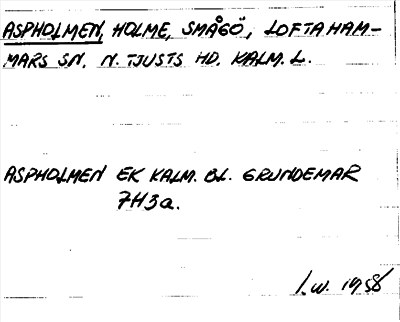 ASPHOLMEN, HOLME, SMÅGÖ, LOFTAHAM-
MARS SN. N. TJUSTS HD. KALM. L.
ASPHOLMEN EK KALM. BL. GRUNDEMAR
7H3a.
I.W. 1958